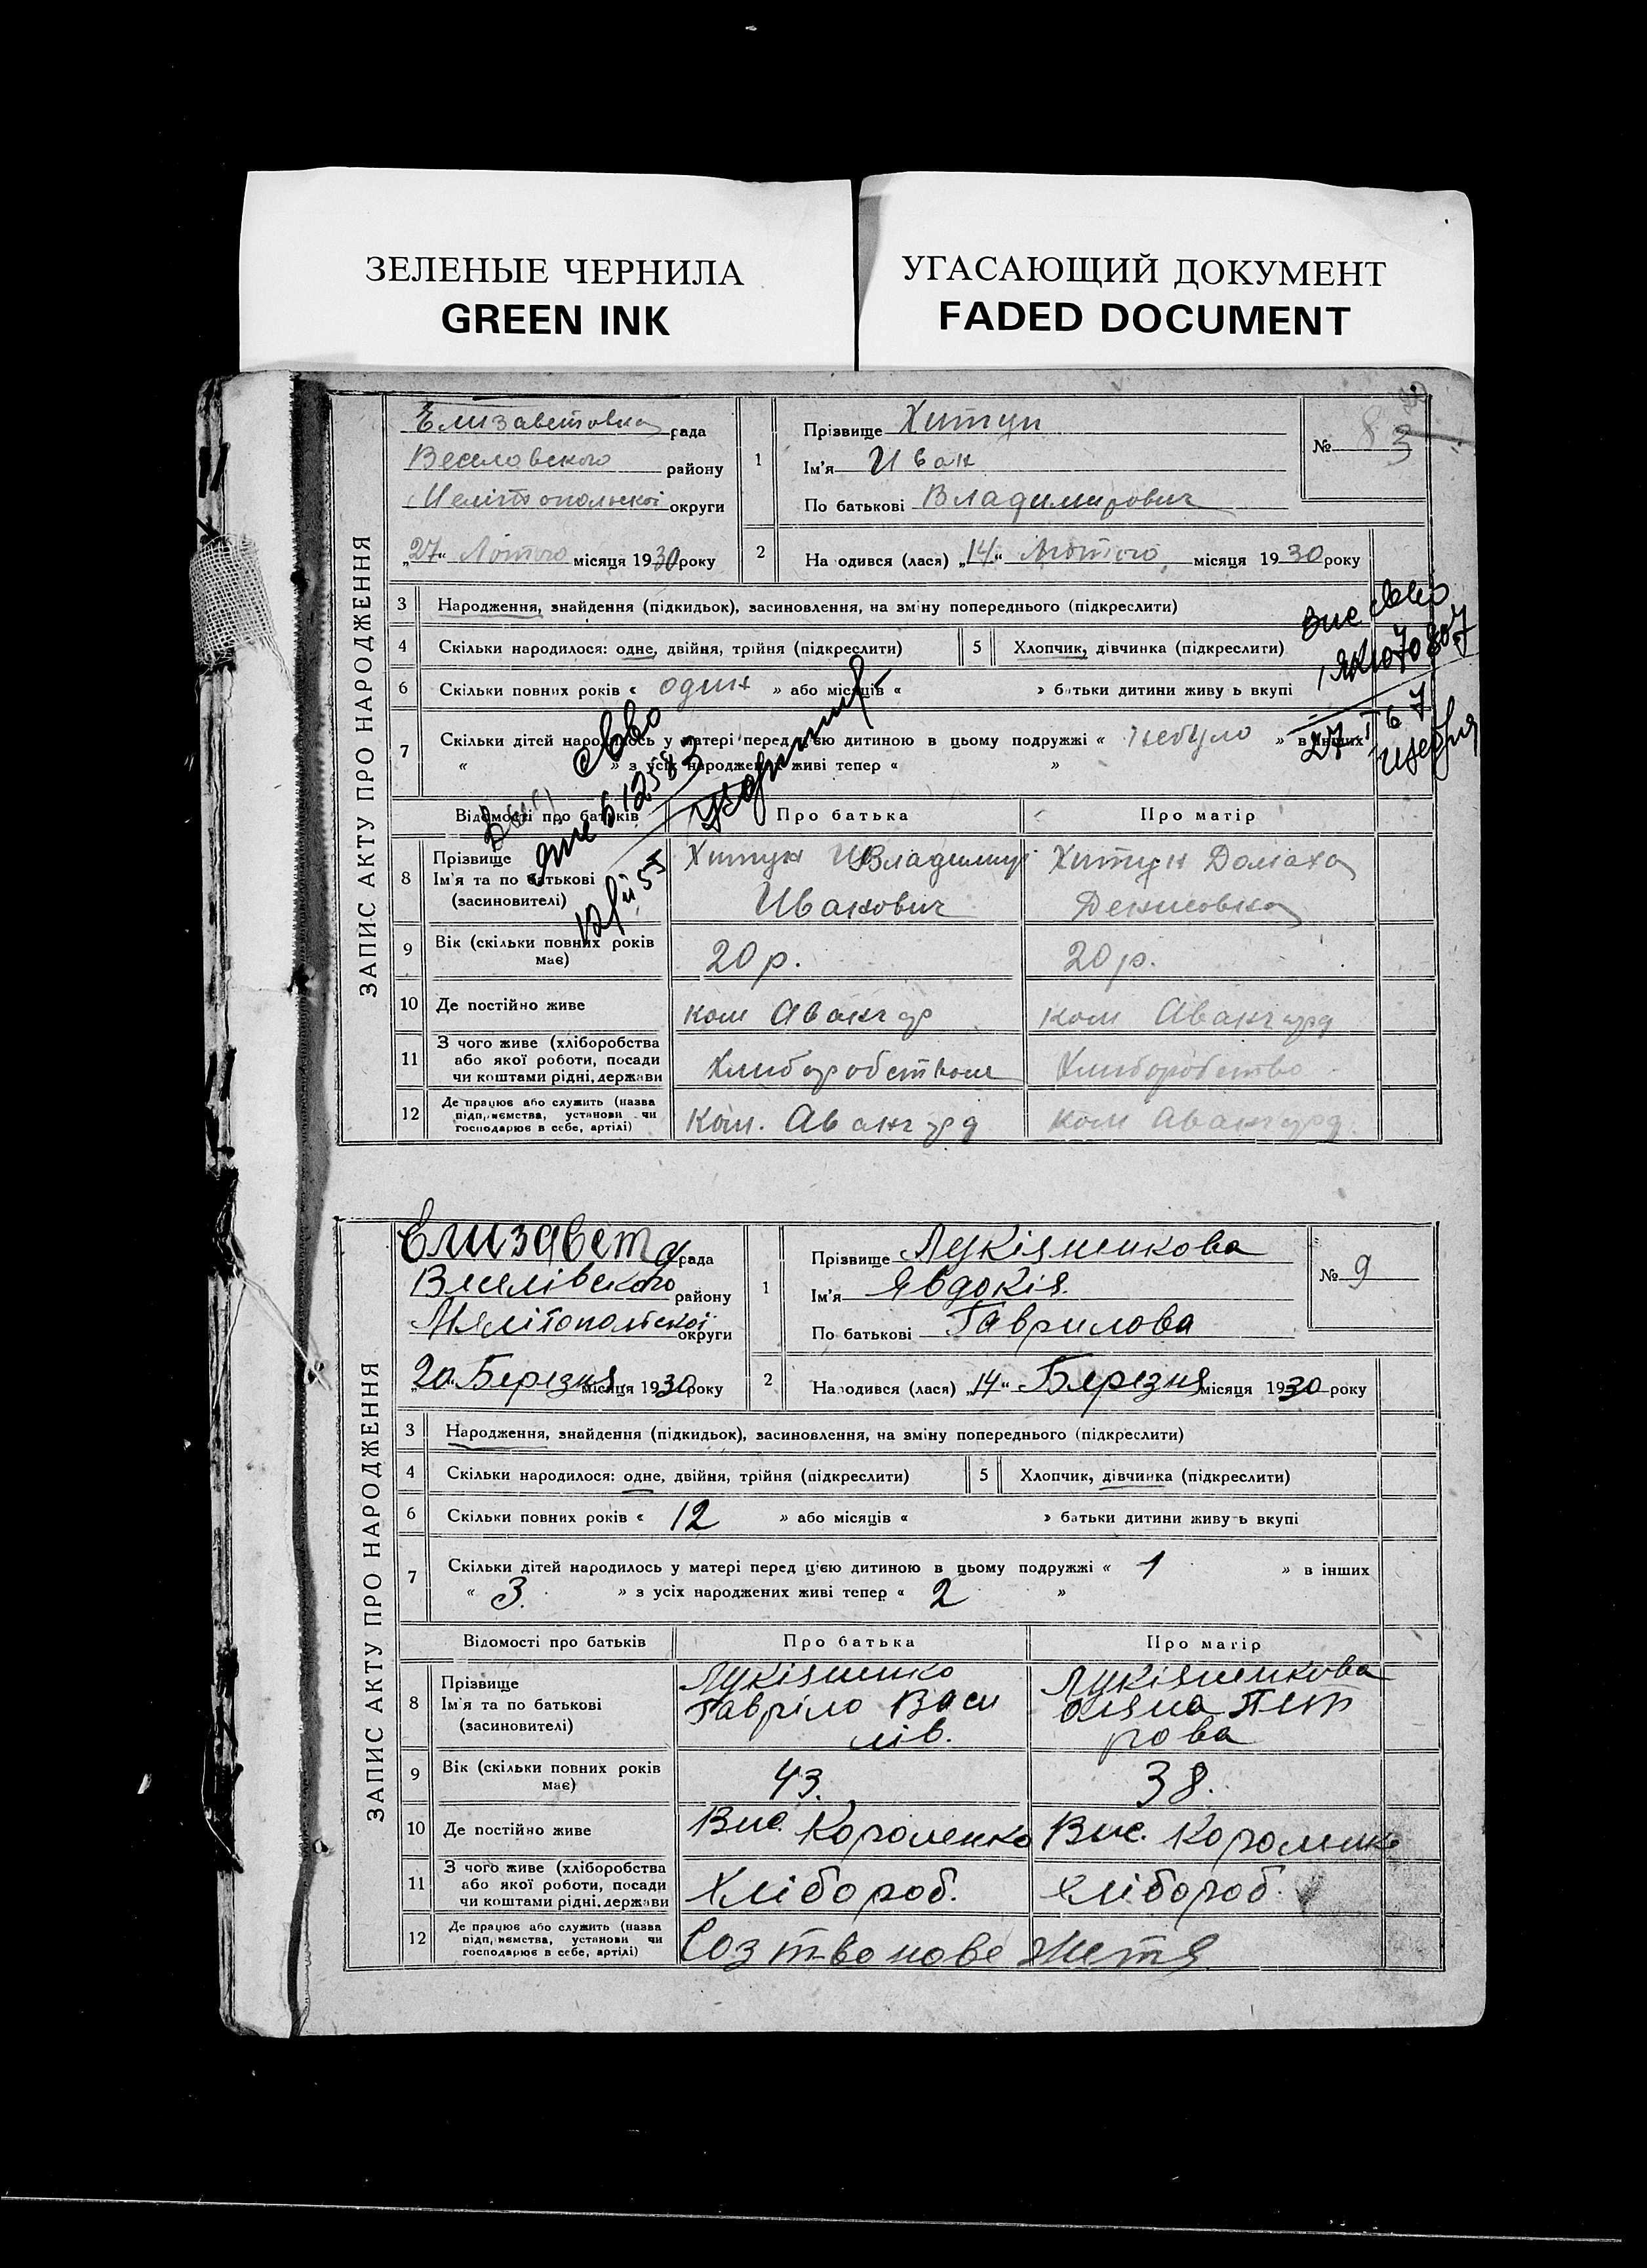 ЗЕЛЕНЫЕ ЧЕРНИЛА
GREEN INK
УГАСАЮЩИЙ ДОКУМЕНТ
FADED DOCUMENT
ЗАПИС АКТУ ПРО НАРОДЖЕННЯ
Елизаветовка рада
Веселовского району
Мелітопольскої округи
„27“ Лютого місяця 1930 року
1
Прізвище Хитун
Ім'я Иван
По батькові Владимирович
№ 8
2
На одився (лася) „14“ Лютого місяця 1930 року
3 Народження, знайдення (підкидьок), засиновлення, на зміну попереднього (підкреслити)
4 Скільки народилося: одне, двійня, трійня (підкреслити) 5 Хлопчик, дівчинка (підкреслити)
6 Скільки повних років « один » або місяців « » батьки дитини живу ь вкупі
7 Скільки дітей народилось у матері перед ц'єю дитиною в цьому подружжі « небуло » в інших
« » з усіх народжених живі тепер « »
свво
612583
Відомості про батьків Про батька Про матір
8 Прізвище Ім'я та по батькові (засновителі)
Хитун Владимир Иванович
Хитун Домаха Денисовка
9 Вік (скільки повних років має) 20 р. 20 р.
10 Де постійно живе ком Авангар ком Авангард
11 З чого живе (хліборобства або якої роботи, посади чи коштами рідні, держави Хлиборобством Хлиборобство
12 Де працює або служить (назва підприємства, установи чи господарює в себе, артілі) Ком. Авангард ком Авангард
ЗАПИС АКТУ ПРО НАРОДЖЕННЯ
Єлизавет рада
Веселівского району
Мялітопольскої округи
„20“ Березня місяця 1930 року
1
Прізвище Лукіяненкова
Ім'я Явдокія
По батькові Гаврилова
№ 9
2
Народився (лася) „14“ Бярезня місяця 1930 року
3 Народження, знайдення (підкидьок), засиновлення, на зміну попереднього (підкреслити)
4 Скільки народилося: одне, двійня, трійня (підкреслити) 5 Хлопчик, дівчинка (підкреслити)
6 Скільки повних років « 12 » або місяців « » батьки дитини живу ь вкупі
7 Скільки дітей народилось у матері перед ц'єю дитиною в цьому подружжі « 1 » в інших
« 3. » з усіх народжених живі тепер « 2 »
Відомості про батьків Про батька Про матір
8 Прізвище Ім'я та по батькові (засиновителі)
Лукіяненко Гавріло Васи лів.
Лукіяненкова Пет рова
9 Вік (скільки повних років має) 43. 38.
10 Де постійно живе Вис. Короленко Вис. Короленк
11 З чого живе (хліборобства або якої роботи, посади чи коштами рідні, держави Хлібороб. хлібороб.
12 Де працює або служить (назва підприємства, установи чи господарює в себе, артілі) Соз т-во нове житя